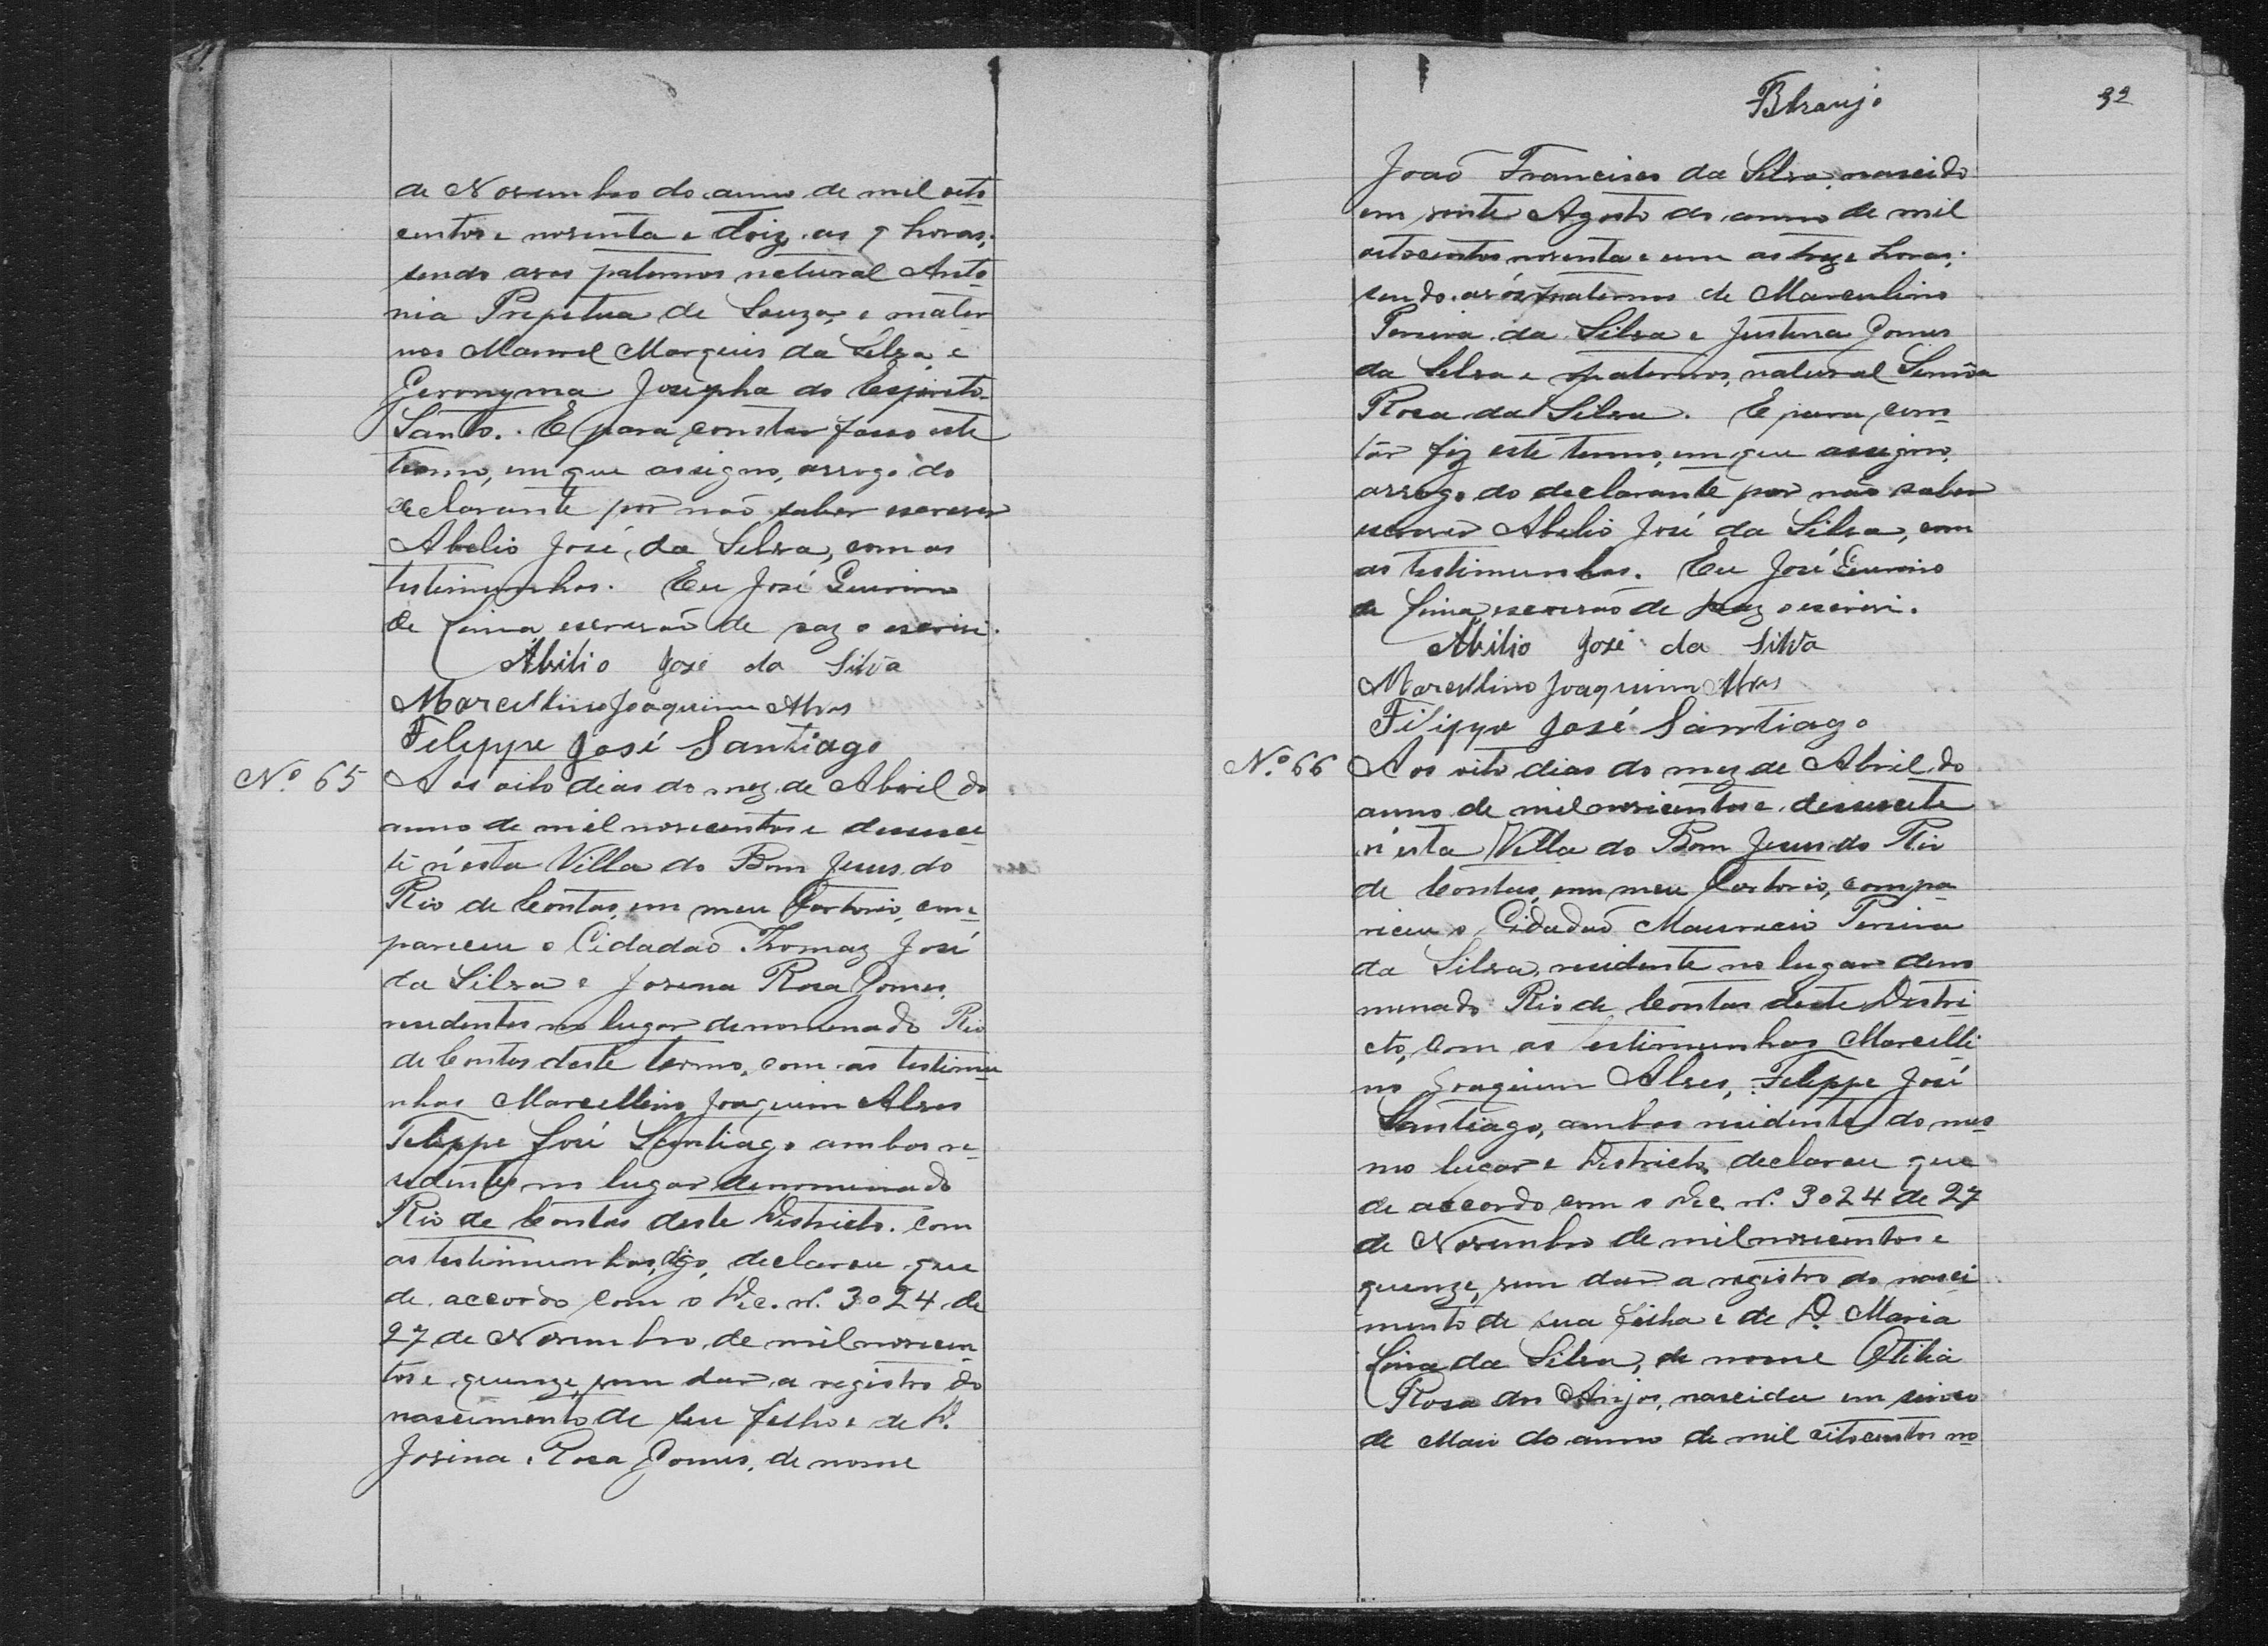 de Novembro do anno de mil oito
centos e noventa e doiz as 9 horas,
sendo avos paternos natural Anto
nia Prepetua de Souza, e mater
nos Manoel Marques da Silva, e
Geronyma Josepha do Espirito
Santo. E para constar fasso este
termo, em que assigno, arrogo do
declarante por não saber escrever
Abelio José da Silva, com as
testimunhas. Eu José Guirino
de Lima, escrivão de paz o escrivi.
Abilio José da Silva
Marcellino Joaquim Alves
Felippe José Santiago
Nº 65 Aos oito dias do mez de Abril do
anno de mil novecentos e desesse
te n'esta Villa do Bom Jesus do
Rio de Contas, em meu Cartorio, com
pareceu o Cidadão Thomaz José
da Silva e Josina Rosa Gomes,
residentes no lugar denomenado Rio
de Contas deste termo, com as testimu
nhas Marcellino Joaquim Alves
Felippe José Santiago ambos re
sidentes no lugar denominado
Rio de Contas deste Districto. com
as testimunhas, digo, declarou que
de accordo com o Dec. nº. 3024 de
27 de Novembro de mil novecen
tos e quenze, vem dar a registro do
nascimento de seu filho e de D.
Josina Rosa Gomes, de nome
BAraujo
32
João Francisco da Silva, nascido
em vinte Agosto do anno de mil
oitocentos noventa e um as treze horas;
sendo avós paternos de Marculino
Pereira da Silva e Justina Gomes
da Silva e paternos, natural
Rosa da Silva. E para cons
tar fiz este termo, em que assigno,
arrogo do declarante por não saber
escrever Abelio José da Silva, com
as testimunhas. Eu José Guirino
de Lima, escrivão de paz o escrivi.
Abilio José da Silva
Marcellino Joaquim Alves
Filippe José Santiago
Nº 66 Aos oito dias do mez de Abril do
anno de mil novicentos e dessesete
n'esta Villa do Bom Jesus do Rio
de Contas, em meu Cartorio, compa
riceu o Cidadão Mauricio Pereira
da Silva, residente no lugar deno
menado Rio de Contas deste Distri
cto, com as testimunhas Marcelli
no Joaquim Alves, Felippe José
Santiago, ambos residente do mes
mo lugar e Districto, declarou que
de accordo com o Dec. nº. 3024 de 27
de Novembro de mil novecentos e
quenze, vem dar a registro do nasci
mento de sua filha e de D. Maria
Lina da Silva, de nome Otilia
Rosa dos Anjos, nascida em sinco
de Maio do anno de mil oitocentos no